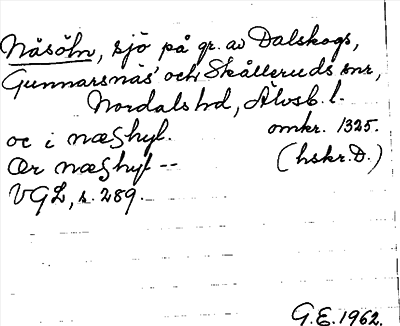 Näsöln, sjö på gr. av Dalskogs,
Gunnarsnäs' och Skålleruds snr,
Nordals hd, Älvsb. l.
oc i næshyl. omkr. 1325.
Or næshyl -- (hskr. D.)
VGL, s. 289.
G.E. 1962.